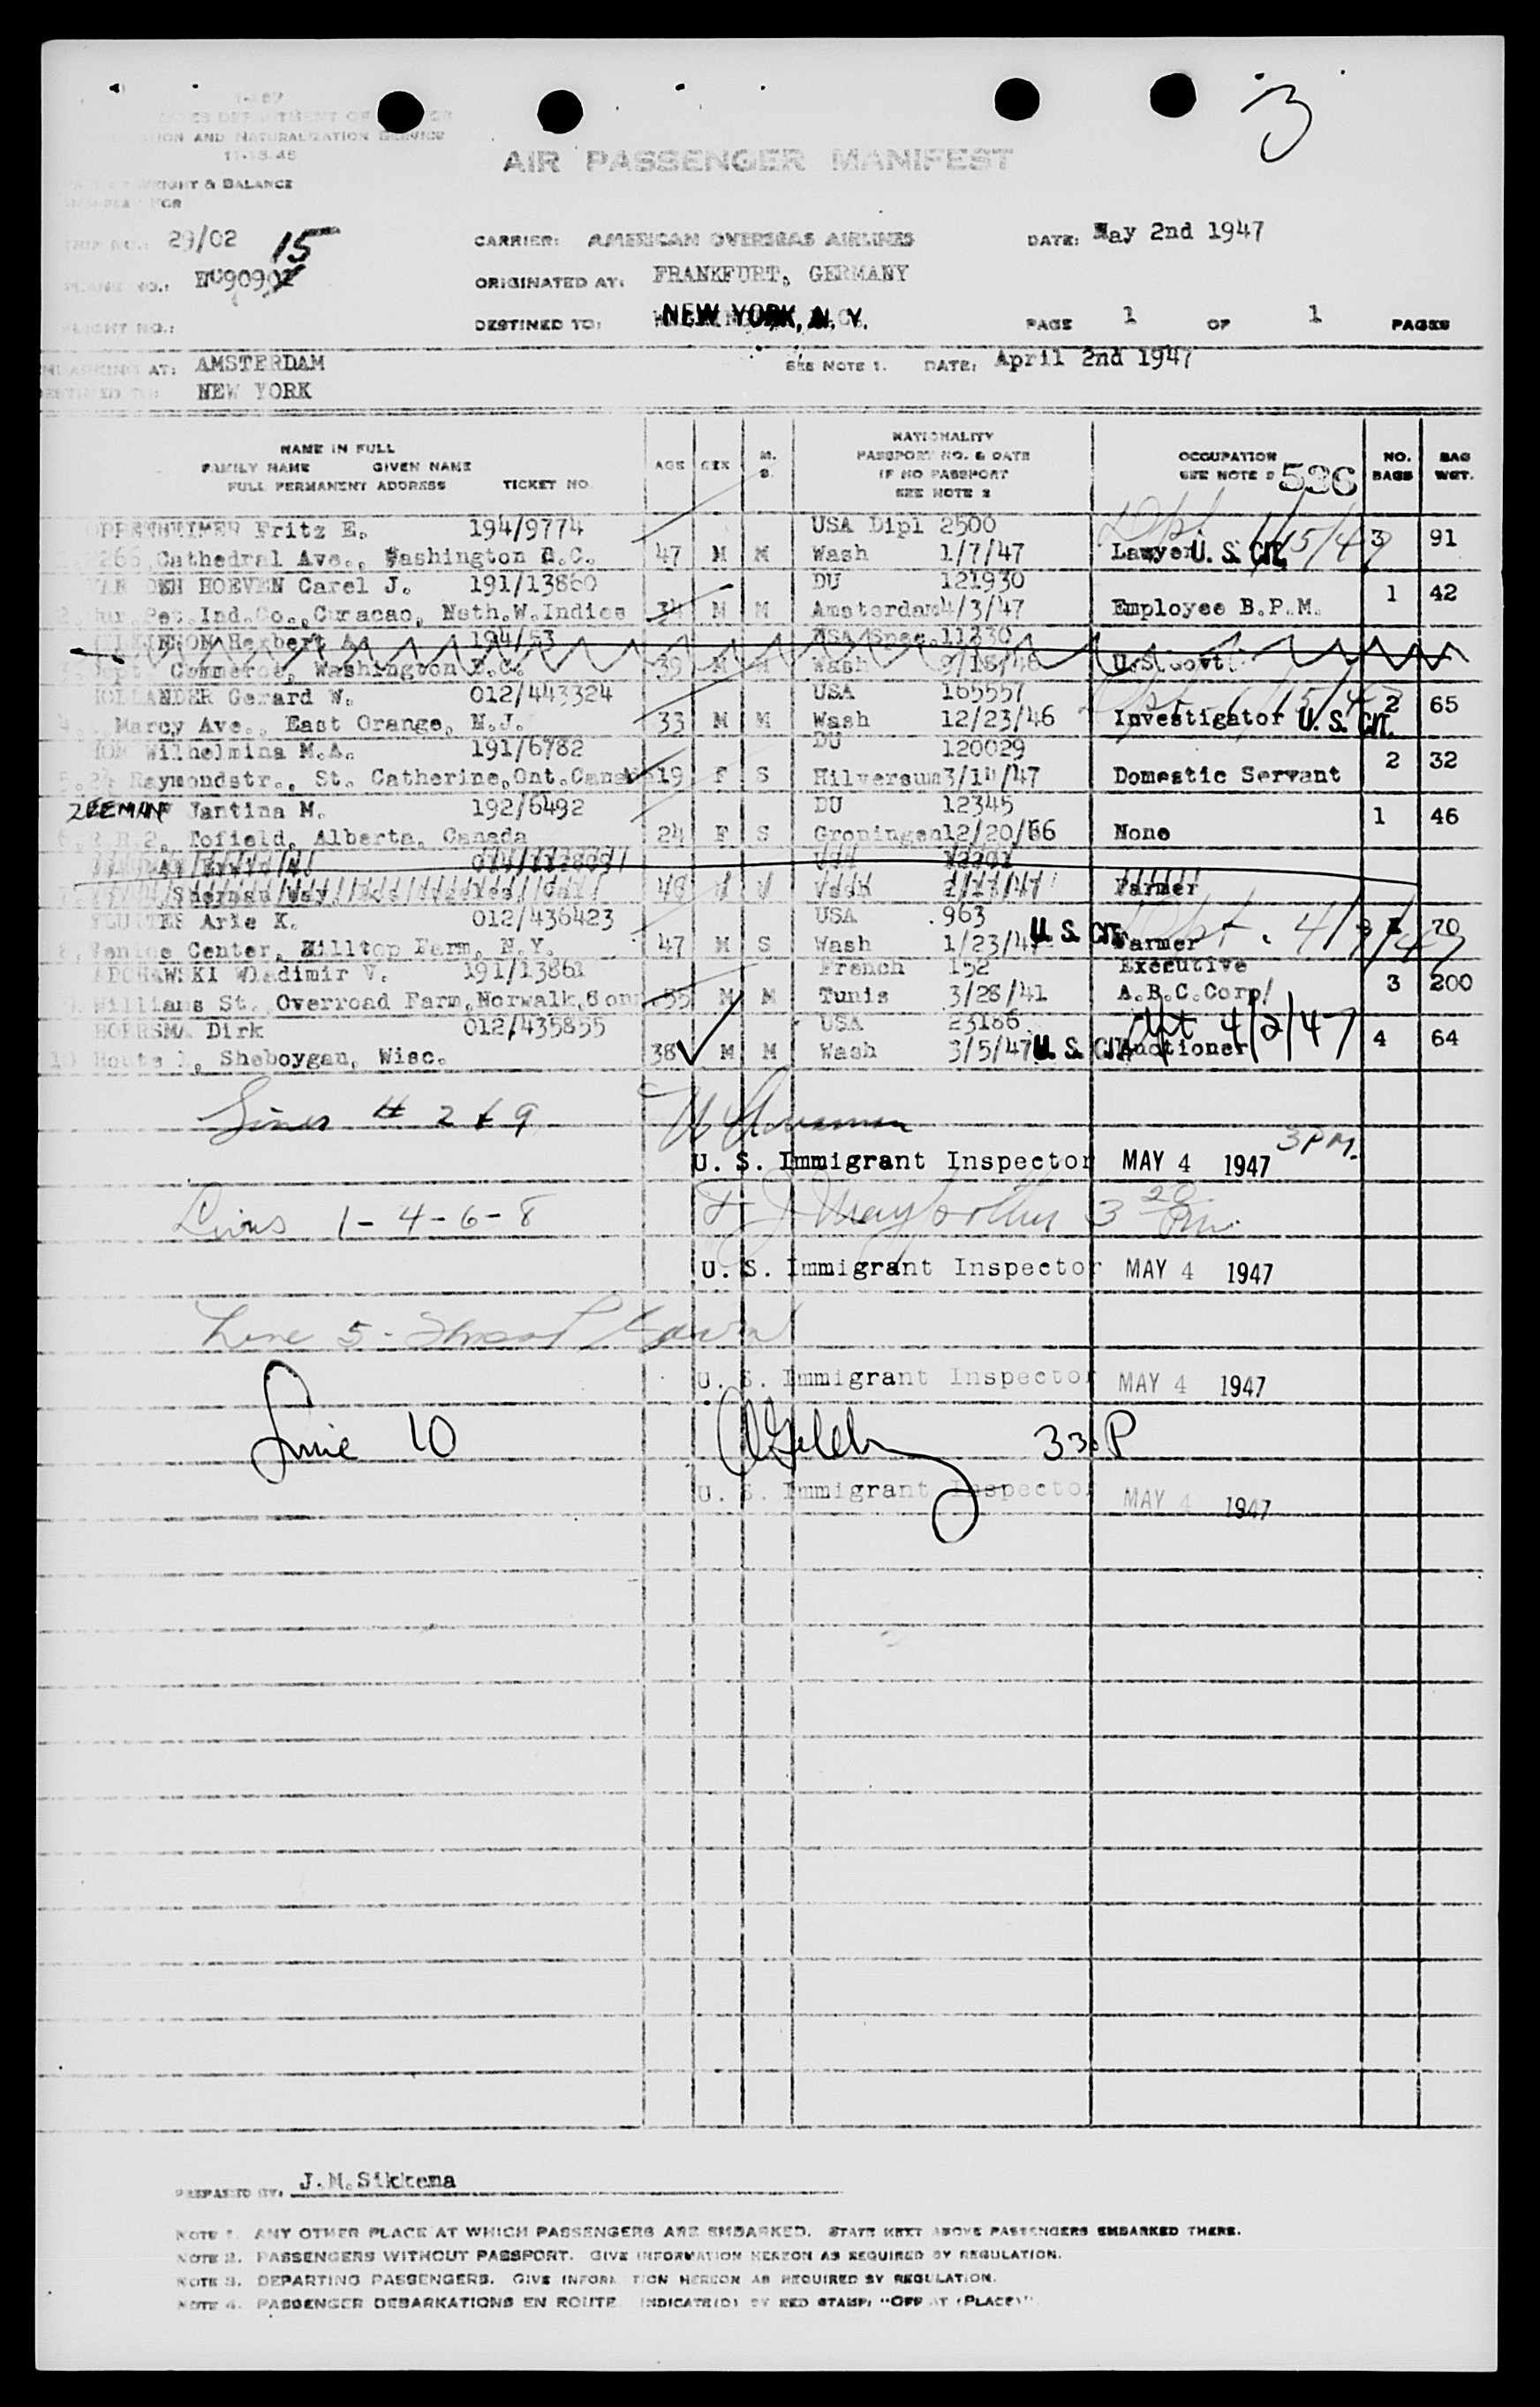 3
AIR PASSENGER MANIFEST
AND NATURALIZATION SERVICE
11-15-45
WEIGHT & BALANCE
FOR
29/02 15
CARRIER: AMERICAN OVERSEAS AIRLINES
DATE: May 2nd 1947
ORIGINATED AT: FRANKFURT, GERMANY
DESTINED TO: NEW YORK, N. Y.
PAGE 1 OF 1 PAGES
AT: AMSTERDAM
SEE NOTE 1. DATE: April 2nd 1947
NEW YORK
NAME IN FULL
FAMILY NAME GIVEN NAME
FULL PERMANENT ADDRESS TICKET NO.
AGE SEX M. S.
NATIONALITY
PASSPORT NO. & DATE
IF NO PASSPORT
SEE NOTE 2
OCCUPATION
SEE NOTE 536
NO. BAGS
BAG WGT.
OPPENHEIMER Fritz E. 194/9774 USA Dipl 2500
Cathedral Ave., Washington D.C. 47 M M Wash 1/7/47 Lawyer U. S. CIT. 3 91
VAN DEN HOEVEN Carel J. 191/13860 DU 121930
Pet.Ind.Co.,Curacao, Neth.W.Indies 34 M M Amsterdam 4/3/47 Employee B.P.M. 1 42
Herbert A. 194/53 USA Spec.11230
Commerce, Washington D.C. 39 M M Wash 9/18/46 U.S.Govt.
HOLLANDER Gerard W. 012/443324 USA 165557
4. Marcy Ave., East Orange, N.J. 33 M M Wash 12/23/46 Investigator U. S. CIT. 2 65
Wilhelmina M.A. 191/6782 DU 120029
5. Raymondstr., St. Catherine,Ont.Canada 19 F S Hilversum 3/1 /47 Domestic Servant 2 32
ZEEMAN Jantina M. 192/6492 DU 12345
6. Tofield, Alberta, Canada 24 F S Groningen 12/20/66 None 1 46
Sherman Way 48 Farmer
Arie K. 012/436423 USA 963
8. Center, Hilltop Farm, N.Y. 47 M S Wash 1/23/47 U. S. CIT. Farmer 70
Wladimir V. 191/13861 French 152 Executive
Williams St. Overroad Farm,Norwalk,Conn 55 M M Tunis 3/28/41 A.B.C.Corp/ 3 200
BOERSMA Dirk 012/435855 USA 23186
10 Route 1, Sheboygan, Wisc. 38 M M Wash 3/5/47 U. S. CIT. Auctioner 4/2/47 4 64
Lines # 2 & 9
U. S. Immigrant Inspector MAY 4 1947 3 PM.
Lines 1-4-6-8 3 20 Pm.
U. S. Immigrant Inspector MAY 4 1947
Line 5-
U. S. Immigrant Inspector MAY 4 1947
Line 10 3 30 P
U. S. Immigrant Inspector MAY 4 1947
PREPARED BY: J.M.Sikkema
NOTE 1. ANY OTHER PLACE AT WHICH PASSENGERS ARE EMBARKED. STATE NEXT ABOVE PASSENGERS EMBARKED THERE.
NOTE 2. PASSENGERS WITHOUT PASSPORT. GIVE INFORMATION HEREON AS REQUIRED BY REGULATION.
NOTE 3. DEPARTING PASSENGERS. GIVE INFORMATION HEREON AS REQUIRED BY REGULATION.
NOTE 4. PASSENGER DEBARKATIONS EN ROUTE INDICATE(D) BY RED STAMP: "OFF AT (PLACE)"